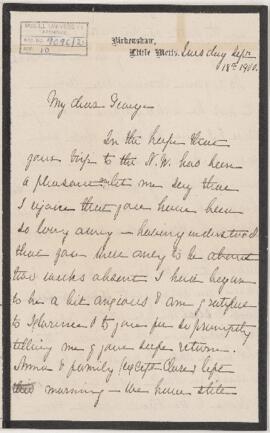 McGILL UNIVERSITY
ARCHIVES
ACC. NO. 909C/2
REF. 10
Birkenshaw,
Little Metis. Tuesday Sept.
18th 1900.
My dear George
In the hope that
your trip to the N.W. has been
a pleasant let me say that
I rejoice that you have been
so long away – having understood
that you were only to be about
two weeks absent I have begun
to be a bit anxious & am grateful
to Florence & to you for so promptly
telling me of your safe return.
Anna & family (except Clare) left
this morning – we have still